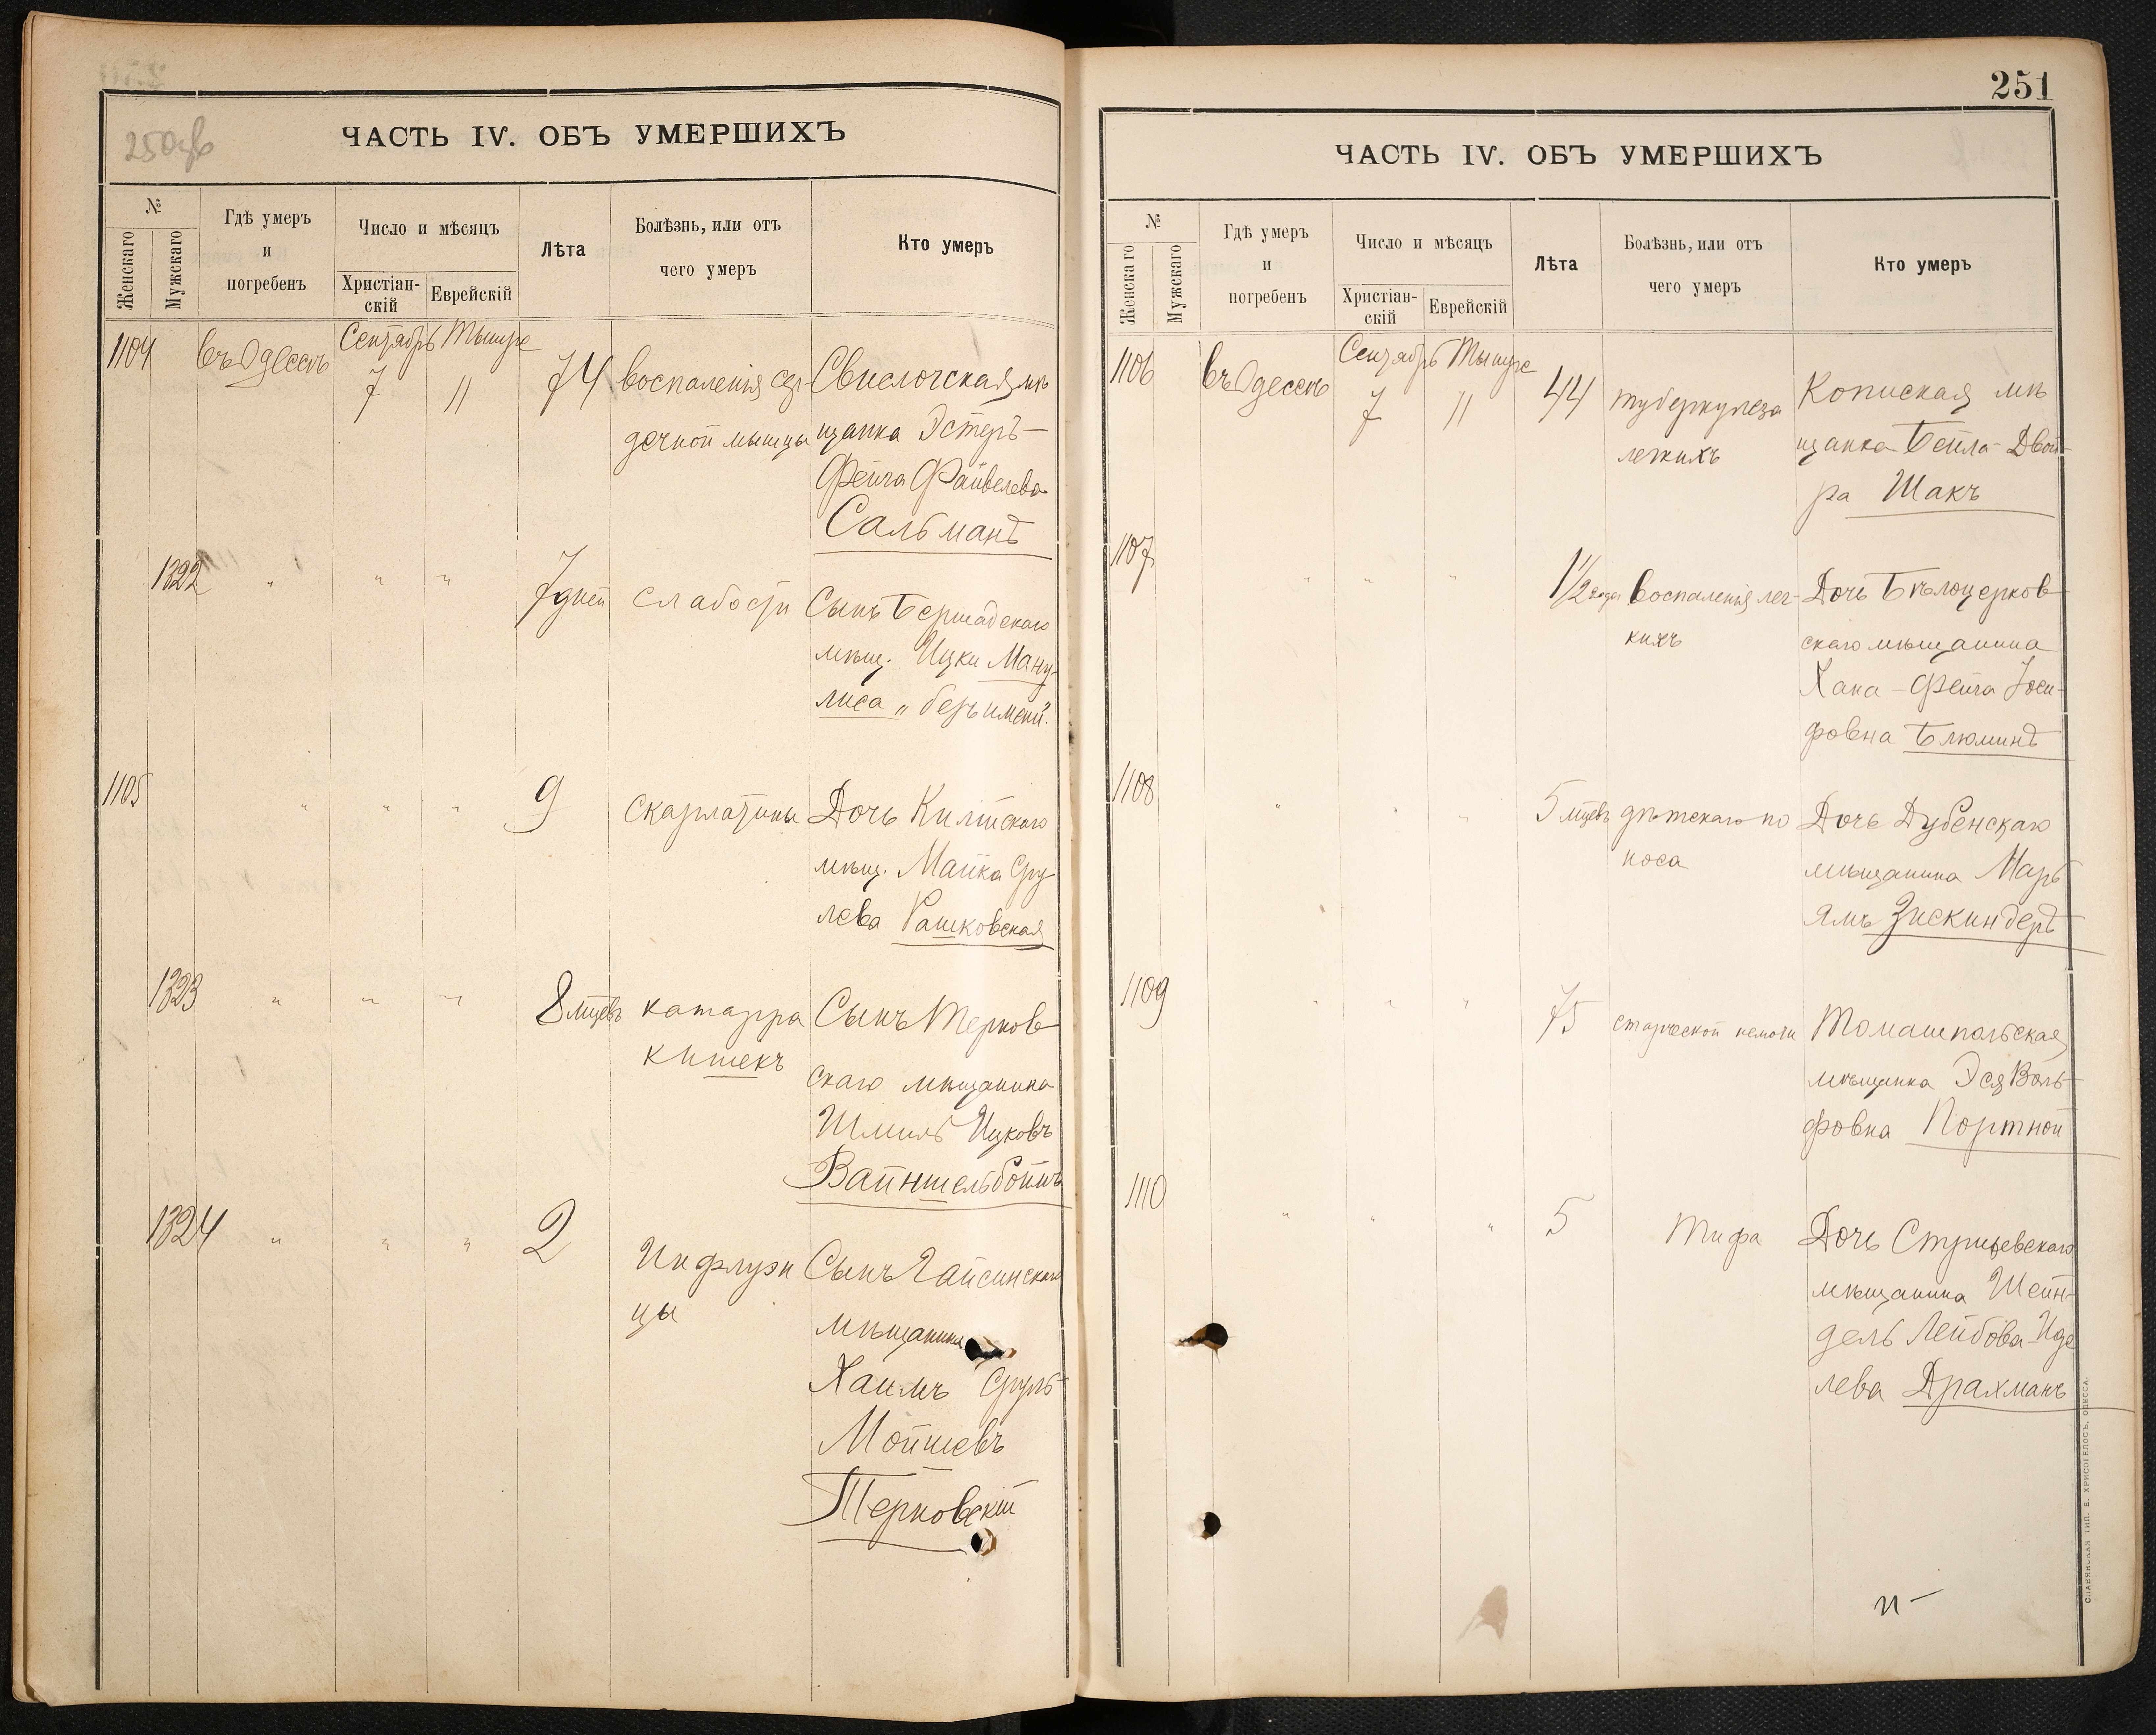 250 об
ЧАСТЬ IV. ОБЪ УМЕРШИХЪ
№
Женскаго
Мужскаго
Гдѣ умеръ
и
погребенъ
Число и мѣсяцъ
Христіан-
скій
Еврейскій
Лѣта
Болѣзнь, или отъ
чего умеръ
Кто умеръ
1104
въ Одессѣ
Сентябрь Тышре
7 11
74
воспаленія сер-
дечной мышцы
Свислочская мѣ
щанка Эстеръ-
Фейга Файвелева
Сальманъ
1322 " " "
7 дней
слабости
Сынъ Бершадскаго
мѣщ. Ицки Ману-
лиса „безъ имени".
1105 " " "
9
скарлатины
Дочь Килійскаго
мѣщ. Майка Сру
лева Рашковская
1323 " " "
8 мцевъ
катарра
кишекъ
Сынъ Терков
скаго мѣщанина
Шмиль Ицковъ
Вайншельбоймъ
1324 " " "
2
Инфлуэн
цы
Сынъ Гайсинскаго
мѣщанина
Хаимъ Сруль-
Мойшевъ
Терковскій
251
ЧАСТЬ IV. ОБЪ УМЕРШИХЪ
№
Женскаго
Мужскаго
Гдѣ умеръ
и
погребенъ
Число и мѣсяцъ
Христіан-
скій
Еврейскій
Лѣта
Болѣзнь, или отъ
чего умеръ
Кто умеръ
1106
въ Одессѣ
Сентябрь Тышре
7 11
44
туберкулеза
легкихъ
Копиская мѣ
щанка Бейла-Двой-
ра Шакъ
1107 " " "
1 1/2 года
воспаленія лег-
кихъ
Дочь Бѣлоцерков
скаго мѣщанина
Хана-Фейга Іоси-
фовна Блюминъ
1108 " " "
5 мцевъ
дѣтскаго по
носа
Дочь Дубенскаго
мѣщанина Марь
ямъ Зискиндеръ
1109 " " "
75
старческой немочи
Томашпольская
мѣщанка Эся Воль-
фовна Портной
1110 " " "
5
Тифа
Дочь
мѣщанина Шейн-
дель Лейбова-Иде
лева Драхманъ
СЛАВЯНСКАЯ ТИП. Е. ХРИСОГЕЛОСЪ, ОДЕССА.